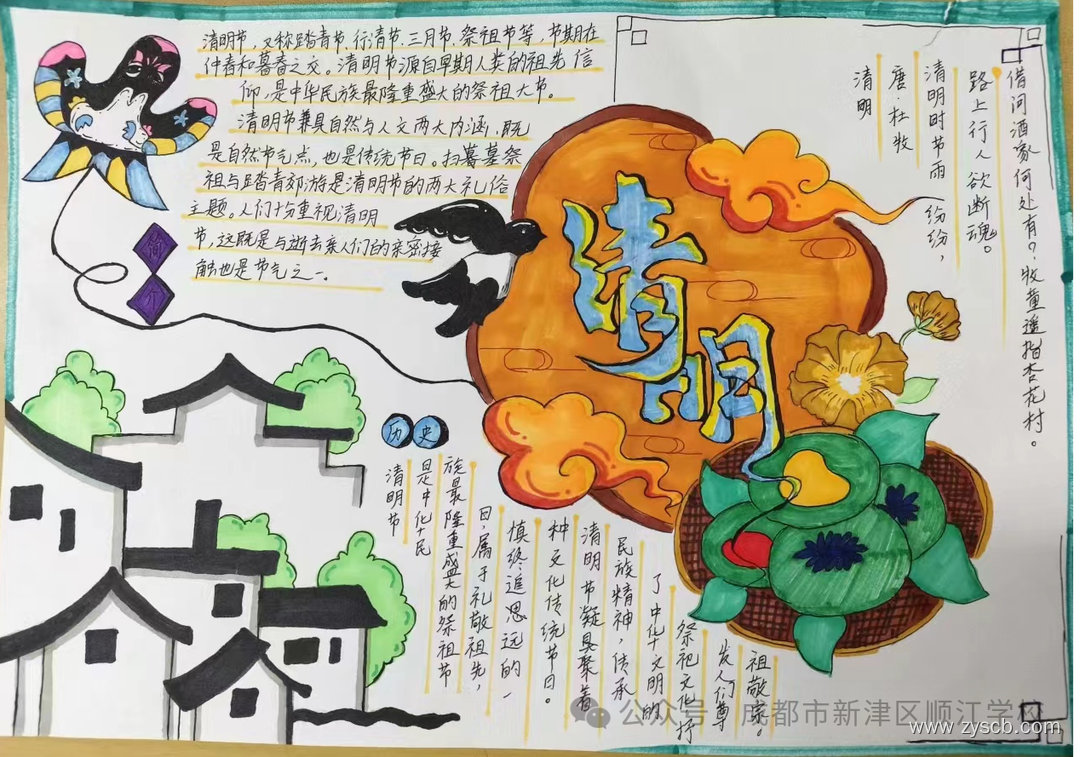 清明节，又称踏青节、行清节、三月节、祭祖节等，节期在
仲春和暮春之交。清明节源自早期人类的祖先信
仰，是中华民族最隆重盛大的祭祖大节。
清明节兼具自然与人文两大内涵，既
是自然节气点，也是传统节日。扫墓墓祭
祖与踏青郊游是清明节的两大礼俗
主题。人们十分重视清明
节，这既是与逝去亲人们的亲密接
触也是节气之一。
简
介
清明
清明
唐·杜牧
清明时节雨
纷纷，
路上行人欲断魂。
借问酒家何处有？牧童遥指杏花村。
历史
清明节
是中华民
族最隆重盛大的祭祖节
日，属于礼敬祖先，
慎终追思远的一
种文化传统节日。
清明节凝具聚着
民族精神，传承
了中华文明的
祭祀文化抒
发人们尊
祖敬宗。
公众号·成都市新津区顺江学校
www.zyscb.com